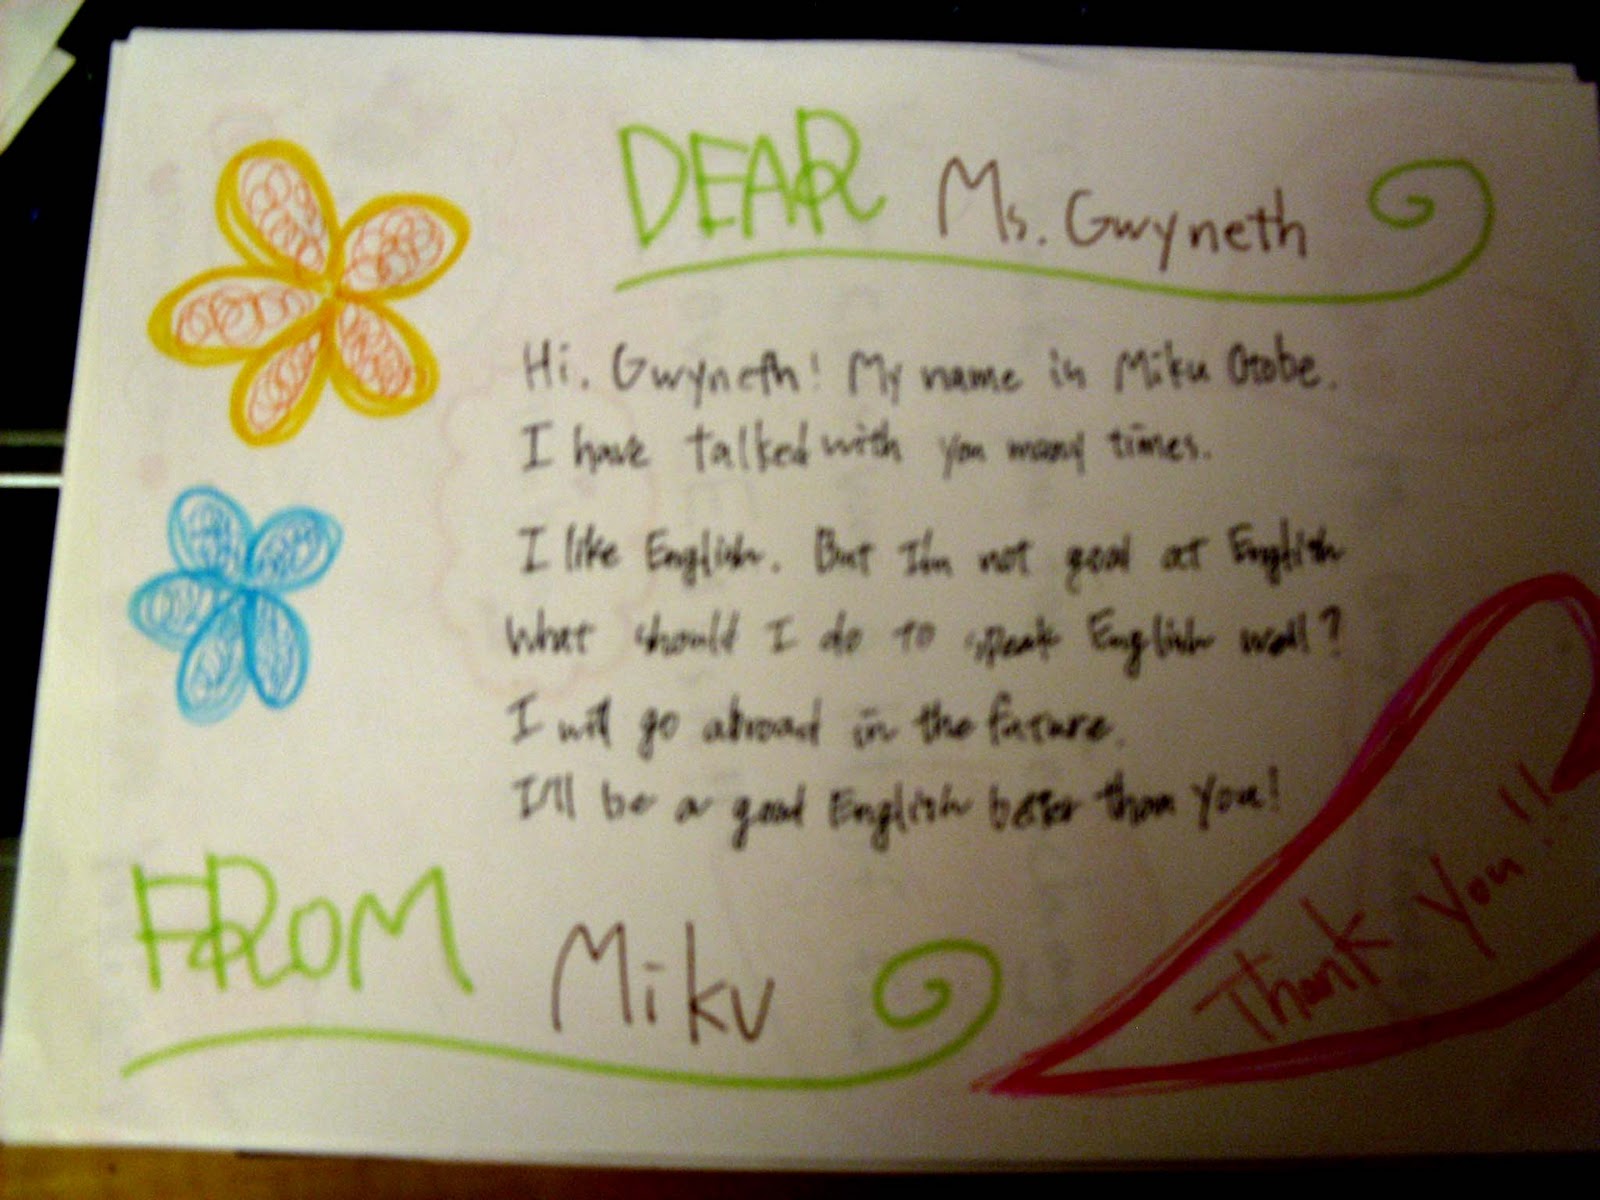 DEAR Ms. Gwyneth
Hi. Gwyneth! My name is Miku Otobe.
I have talked with you many times.
I like English. But I'm not good at English
What should I do to speak English well?
I will go abroad in the future.
I'll be a good English better than you!
FROM Miku
Thank you!!